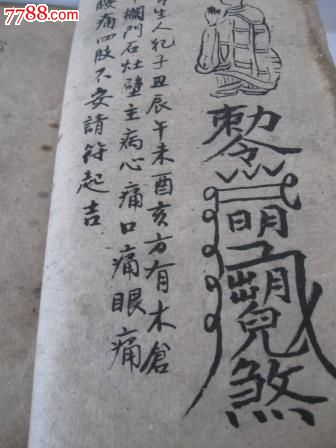 7788.com
生人犯子丑辰午未酉亥方有木倉
欄門石灶壁主病心痛口痛眼痛
腰痛四肢不安請符起吉
敕令
明
煞